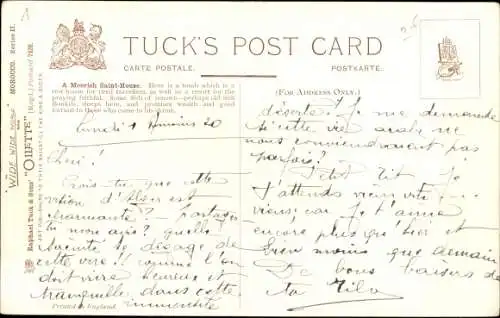 TUCK'S POST CARD
CARTE POSTALE.
POSTKARTE.
A Moorish Saint-House. Here is a tomb which is a
rest house for tired travellers, as well as a resort for the
praying faithful, home of
Hookih, sleeps here, and promises wealth and good
fortune to those who come to his
(FOR ADDRESS ONLY.)
"WIDE WIDE WORLD" MOROCCO. Series II.
Raphael Tuck & Sons' "OILETTE"
ART PUBLISHERS TO THEIR MAJESTIES THE KING & QUEEN.
Lundi 20
Cheri!
Crois-tu que cette
vision d'Alger est
charmante? - partages
tu mon avis? quelle
de
cette vie!! comme l'on
doit vivre heureux et
tranquille dans cette
immensité
Printed in England
déserte! Je me demande
si cette vie arabe ne
nous conviendrait pas
parfois?
Petit Tit Je
t'attends viens vite -
viens; car Je t'aime
encore plus qu'hier et
bien moins que demain
De bons baisers de
ta